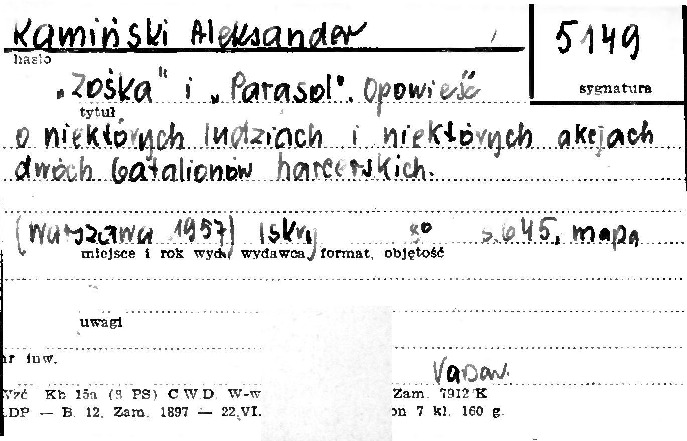 Kamiński Aleksander
5149
hasło
sygnatura
„Zośka" i „Parasol". Opowieść
tytuł
o niektórych ludziach i niektórych akcjach
dwóch batalionów harcerskich.
(Warszawa 1957) Iskry 8° s. 645, mapa
miejsce i rok wyd., wydawca, format, objętość
uwagi
nr inw.
Wzć Kb 15a (S PS) C W D. W-w Zam. 7912 K
LDP — B. 12. Zam. 1897 — 22.VI. on 7 kl. 160 g.